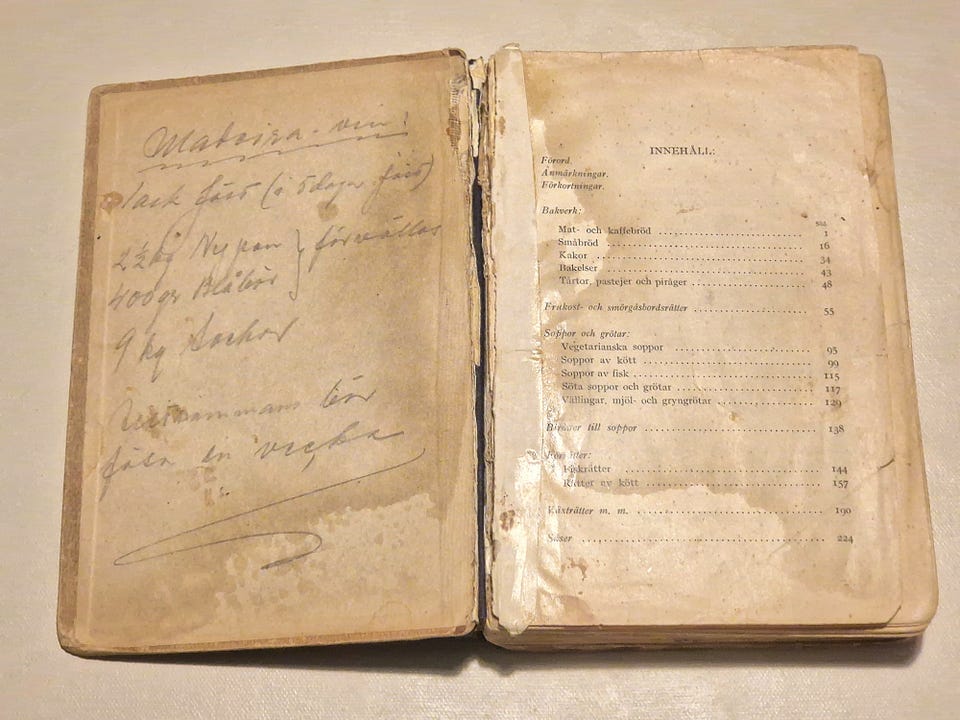 Madeira-vin:
jäst (i 5 dagar
2½ kg Nypon } förvällas
400 gr Blåbär
9 kg Socker
bör
jäsa en vecka
INNEHÅLL:
Förord.
Anmärkningar.
Förkortningar.
Bakverk:
Sid.
Mat- och kaffebröd 1
Småbröd 16
Kakor 34
Bakelser 43
Tårtor, pastejer och piråger 48
Frukost- och smörgåsbordsrätter 55
Soppor och grötar:
Vegetarianska soppor 95
Soppor av kött 99
Soppor av fisk 115
Söta soppor och grötar 117
Vällingar, mjöl- och gryngrötar 129
till soppor 138
Fiskrätter 144
Rätter av kött 157
Växträtter m. m. 190
Såser 224